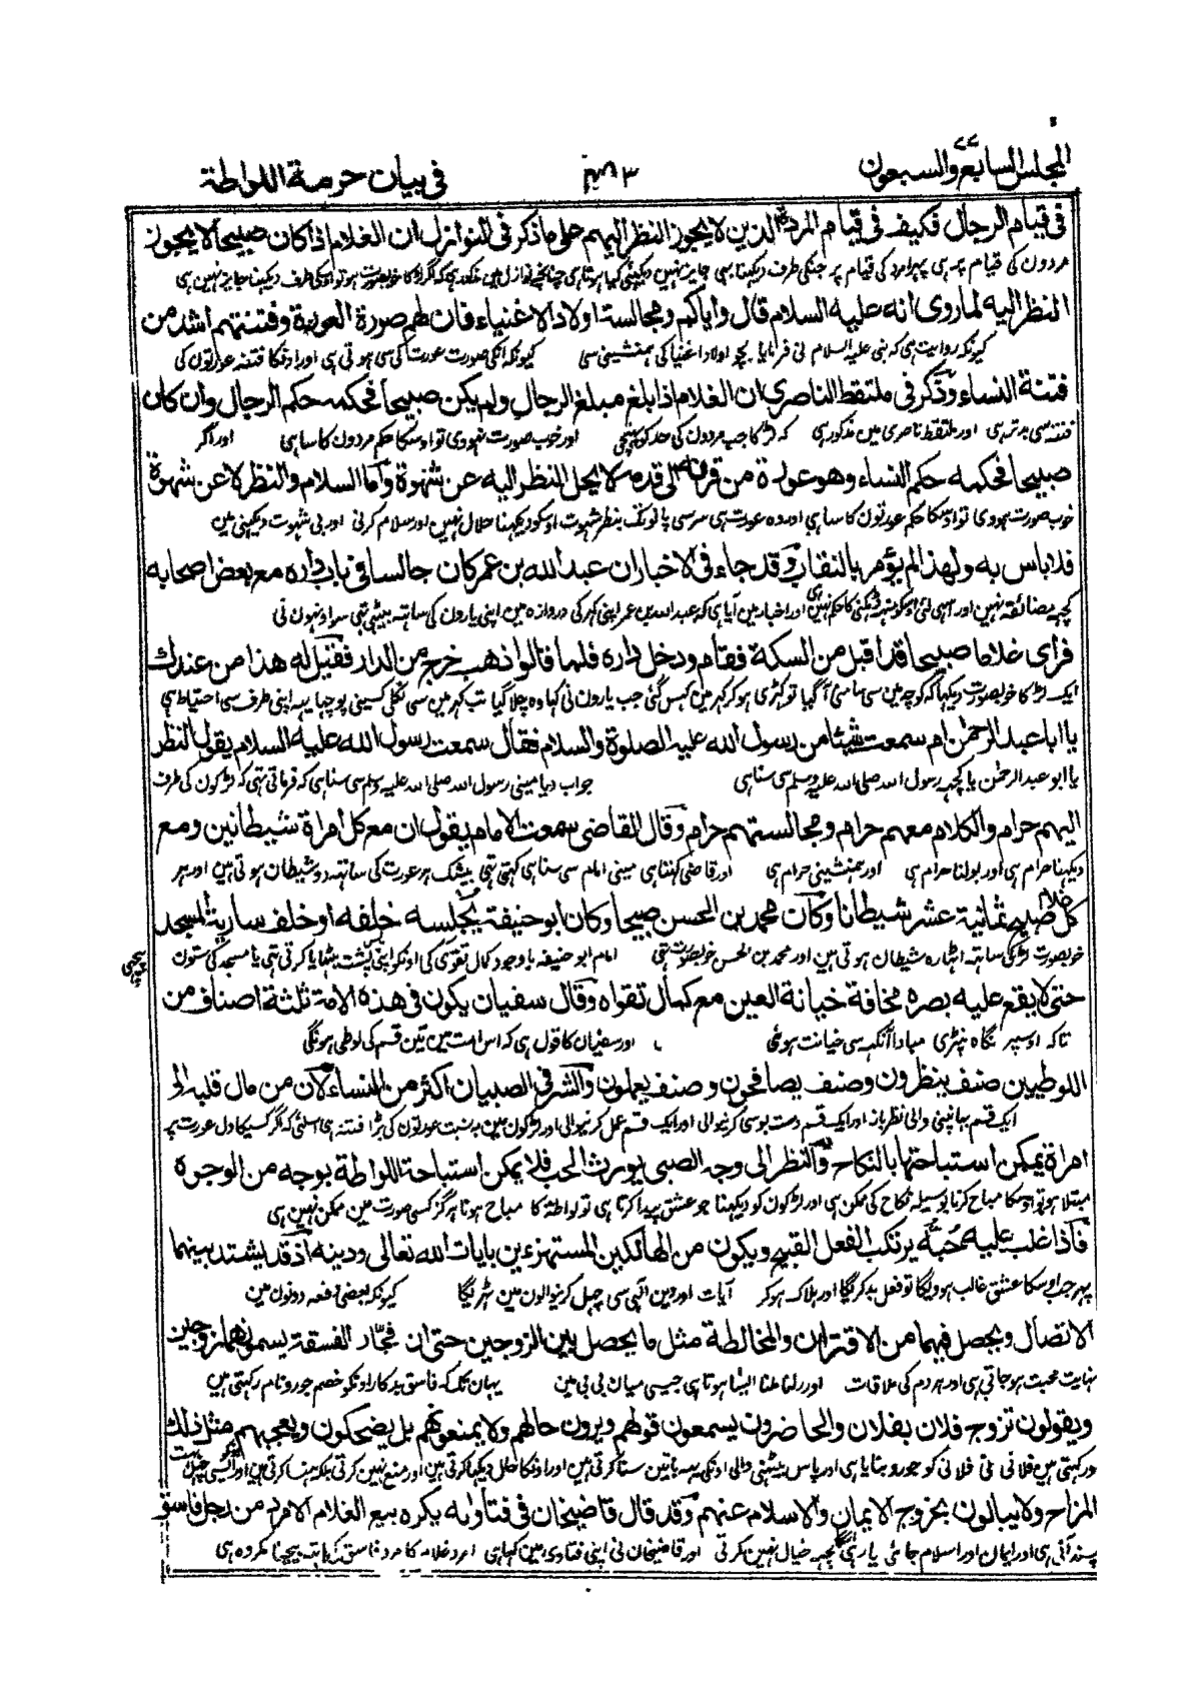 المجلس السابع والسبعون
في بيان حرمة اللواطة
في قيام الرجال فكيف في قيام المرد الذين لا يجوز النظر اليهم على ما ذكر في النوازل ان الغلام اذا كان صبيحا لا يجوز
مردون کی قیام پر ہی پہر امرد کی قیام پر جنکی طرف دیکہنا بہی جایز نہین
النظر اليه لما روى انه عليه السلام قال واياكم ومجالسة اولاد الاغنياء فان لهم صورة العورة وفتنتهم اشد من
کیونکہ روایت ہی کہ نبی علیہ السلام نی فرمایا بچو اولاد اغنیا کی ہمنشینی سی کیونکہ انکی صورت عورت کی سی ہوتی ہی اور اونکا فتنہ عورتون کی
فتنة النساء وذكر في ملتقط الناصرى ان الغلام اذا بلغ مبلغ الرجال ولم يكن صبيحا فحكمه حكم الرجال وان كان
فتنہ سی بدتر ہی اور ملتقط ناصری مین مذکور ہی کہ لڑکا جب مردون کی حد کو پہنچی اور خوب صورت نہووی تو اوسکا حکم مردون کا سا ہی اور اگر
صبيحا فحكمه حكم النساء وهو عورة من قرنه الى قدمه لا يحل النظر اليه عن شهوة واما السلام والنظر لا عن شهوة
خوب صورت ہووی تو اوسکا حکم عورتون کا سا ہی اور وہ عورت ہی سر سی پانو تک بنظر شہوت اوسکو دیکہنا حلال نہین اور سلام کرنی اور بی شہوت دیکہنی مین
فلا باس به ولهذا لم يؤمر بالنقاب وقد جاء في الاخبار ان عبد الله بن عمر كان جالسا في باب داره مع بعض اصحابه
کچہہ مضائقہ نہین اور اسی لئی اوسکو منہہ ڈہکنی کا حکم نہین ہی اور اخبار مین آیا ہی کہ عبد اللہ بن عمر اپنی گہر کی دروازہ مین اپنی یارون کی ساتہہ بیٹہی تہی سو اونہون نی
فراى غلاما صبيحا قد اقبل من السكة فقام ودخل داره فلما قالوا ذهب خرج من الدار فقيل له هذا من عندك
ایک لڑکا خوبصورت دیکہا کہ کوچہ مین سی سامنی آگیا تو کہڑی ہو کر گہر مین گہس گئی جب یارون نی کہا وہ چلا گیا تب گہر مین سی نکلی کسینی پوچہا یہہ اپنی طرف سی احتیاط ہی
يا ابا عبد الرحمن ام سمعت شيئا من رسول الله عليه الصلوة والسلام فقال سمعت رسول الله عليه السلام يقول النظر
یا ابو عبد الرحمن یا کچہہ رسول اللہ صلی اللہ علیہ وسلم سی سنا ہی جواب دیا مینی رسول اللہ صلی اللہ علیہ وسلم سی سنا ہی کہ فرماتی تہی کہ لڑکون کی طرف
اليهم حرام والكلام معهم حرام ومجالستهم حرام وقال القاضى سمعت الامام يقول ان مع كل امراة شيطانين ومع
دیکہنا حرام ہی اور بولنا حرام ہی اور ہمنشینی حرام ہی اور قاضی کہتا ہی مینی امام سی سنا ہی کہتی تہی بیشک ہر عورت کی ساتہہ دو شیطان ہوتی ہین اور ہر
كل غلام صبيح ثمانية عشر شيطانا وكان محمد بن الحسن صبيحا وكان ابو حنيفة يجلسه خلفه او خلف سارية المسجد
خوبصورت لڑکی ساتہہ اٹہارہ شیطان ہوتی ہین اور محمد بن الحسن خوبصورت تہی امام ابو حنیفہ باوجود کمال تقوی کی اونکو اپنی پشت بٹہایا کرتی تہی یا مسجد کی ستون
پیچہی
حتى لا يقع عليه بصره مخافة خيانة العين مع كمال تقواه وقال سفيان يكون في هذه الامة ثلثة اصناف من
تاکہ اوسپر نگاہ نپڑی مبادا آنکہہ سی خیانت ہوئی اور سفیان کا قول ہی کہ اس امت مین تین قسم کی لوطی ہونگی
اللوطيين صنف ينظرون وصنف يصافحون وصنف يعملون والشر في الصبيان اكثر من النساء لان من مال قلبه الى
ایک قسم والی نظر باز اور ایک قسم دست بوسی کرنیوالی اور ایک قسم عمل کرنیوالی اور لڑکون مین بہ نسبت عورتون کی بڑا فتنہ ہی اسلئی کہ اگر کسیکا دل عورت پر
امراة يمكن استباحتها بالنكاح والنظر الى وجه الصبى يورث الحب فلا يمكن استباحة اللواطة بوجه من الوجوه
مبتلا ہو تو اوسکا مباح کرنا بوسیلہ نکاح کی ممکن ہی اور لڑکون کو دیکہنا جو عشق پیدا کرتا ہی تو لواطة کا مباح ہونا ہرگز کسی صورت مین ممکن نہین ہی
فاذا غلب عليه محبته يرتكب الفعل القبيح ويكون من الهالكين المستهزءين بايات الله تعالى ودينه اذ قد يشتد بينهما
پہر جب اوسکا عشق غالب ہوویگا تو فعل بد کریگا اور ہلاک ہو کر آیات اور دین الہی سی چہل کرنیوالون مین ٹہریگا کیونکہ بعضی دفعہ دونون مین
الاتصال ويحصل فيهما من الاقتران والمخالطة مثل ما يحصل بين الزوجين حتى ان فجار الفسقة يسمونهما زوجين
نہایت محبت ہو جاتی ہی اور ہر دم کی ملاقات اور رلنا ملنا ایسا ہوتا ہی جیسی میان بی بی مین یہان تک کہ فاسق بدکار اونکو خصم جورو نام رکہتی ہین
ويقولون تزوج فلان بفلان والحاضرون يسمعون قولهم ويرون حالهم ولا يمنعونهم بل يضحكون ويعجبهم مثل ذلك
اور کہتی ہین فلانی نی فلانی کو جورو بنایا ہی اور پاس بیٹہنی والی اونکی یہہ باتین سنا کرتی ہین اور اونکا حال دیکہا کرتی ہین اور منع نہین کرتی بلکہ ہنسا کرتی ہین
المزاح ولا يبالون بخروج الايمان والاسلام عنهم وقد قال قاضيخان في فتاواه يكره بيع الغلام الامرد من رجل فاسق
پسند آتی ہی اور ایمان اور اسلام جاتی کچہہ خیال نہین کرتی اور قاضیخان نی اپنی فتاوی مین کہا ہی امرد غلام کا مرد فاسق کی ہاتہہ بیچنا مکروہ ہی